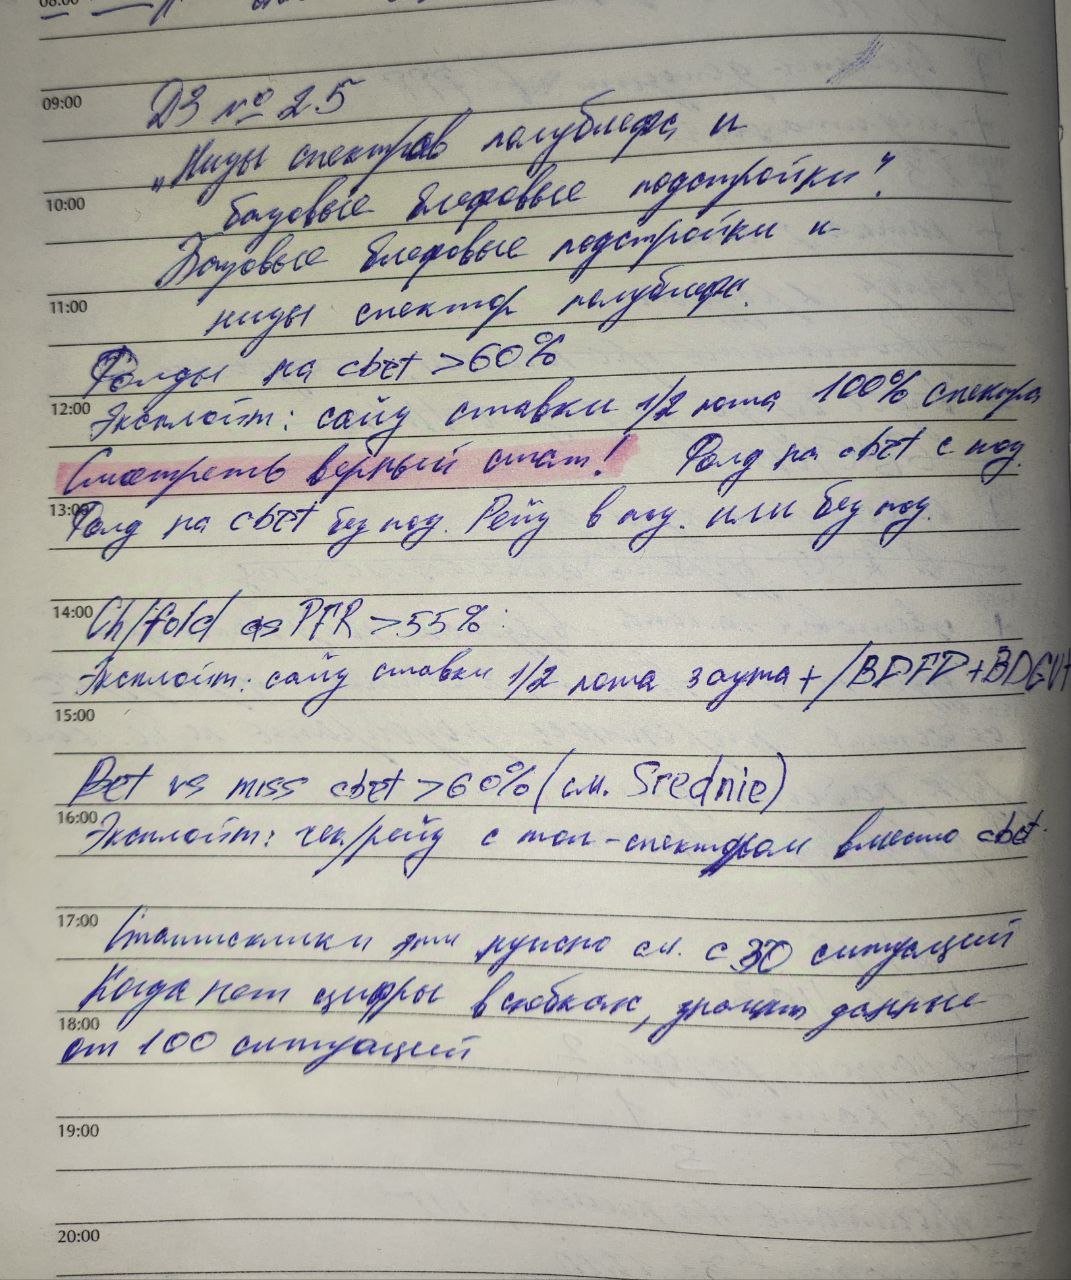 08:00
09:00
ДЗ № 25
„Виды спектров полублефа и
10:00
базовые блефовые подстройки"
Базовые блефовые подстройки и
11:00
виды спектор полублефа.
Фолды на cbet >60%
12:00
Эксплойт: сайз ставки 1/2 пота 100% спектра
Смотреть верный стат! Фолд на cbet с поз.
13:00
Фолд на cbet без поз. Рейз в поз. или без поз.
14:00
Ch/fold as PFR >55%
Эксплойт: сайз ставки 1/2 пота 3 аута + /BDFD+BDGUT
15:00
Bet vs miss cbet >60% (см. Srednie)
16:00
Эксплойт: чек/рейз с топ-спектром вместо cbet.
17:00
Статистики эти нужно см. с 30 ситуаций
Когда нет цифры в скобках, значит данные
18:00
от 100 ситуаций
19:00
20:00